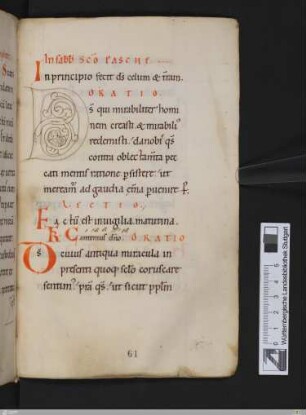 In sabb sco pasche
In principio fecit ds celum & tram.
ORATIO.
Ds qui mirabiliter homi
nem creasti. & mirabili
redemisti. da nobis qs
contra oblec tamta pec
cati mentis ratione psistere. ut
meream ad gaudia etna puenire. p.
LECTIO.
Factū est in uigilia matutina.
Cantemus dño. ORATIO
Ds cuius antiqua miracula in
presenti quoq; sclo coruscare
sentim. pta qs. ut sicut pplm
61
Württembergische Landesbibliothek Stuttgart